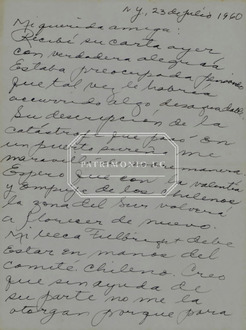 N.Y., 23 de julio 1960
Mi querida amiga:
Recibí su carta ayer
con verdadera alegría.
Estaba preocupada pensando
que tal vez le habría
ocurrido algo desagradable.
Su descripción de la
catástrofe que pasó en
un puerto sureño me
PATRIMONIO.CL
Espero que con la valentía
y empuje de los chilenos
la zona del Sur volverá
a florecer de nuevo.
Mi beca Fulbright debe
estar en manos del
comité chileno. Creo
que sin ayuda de
su parte no me la
otorgan porque para